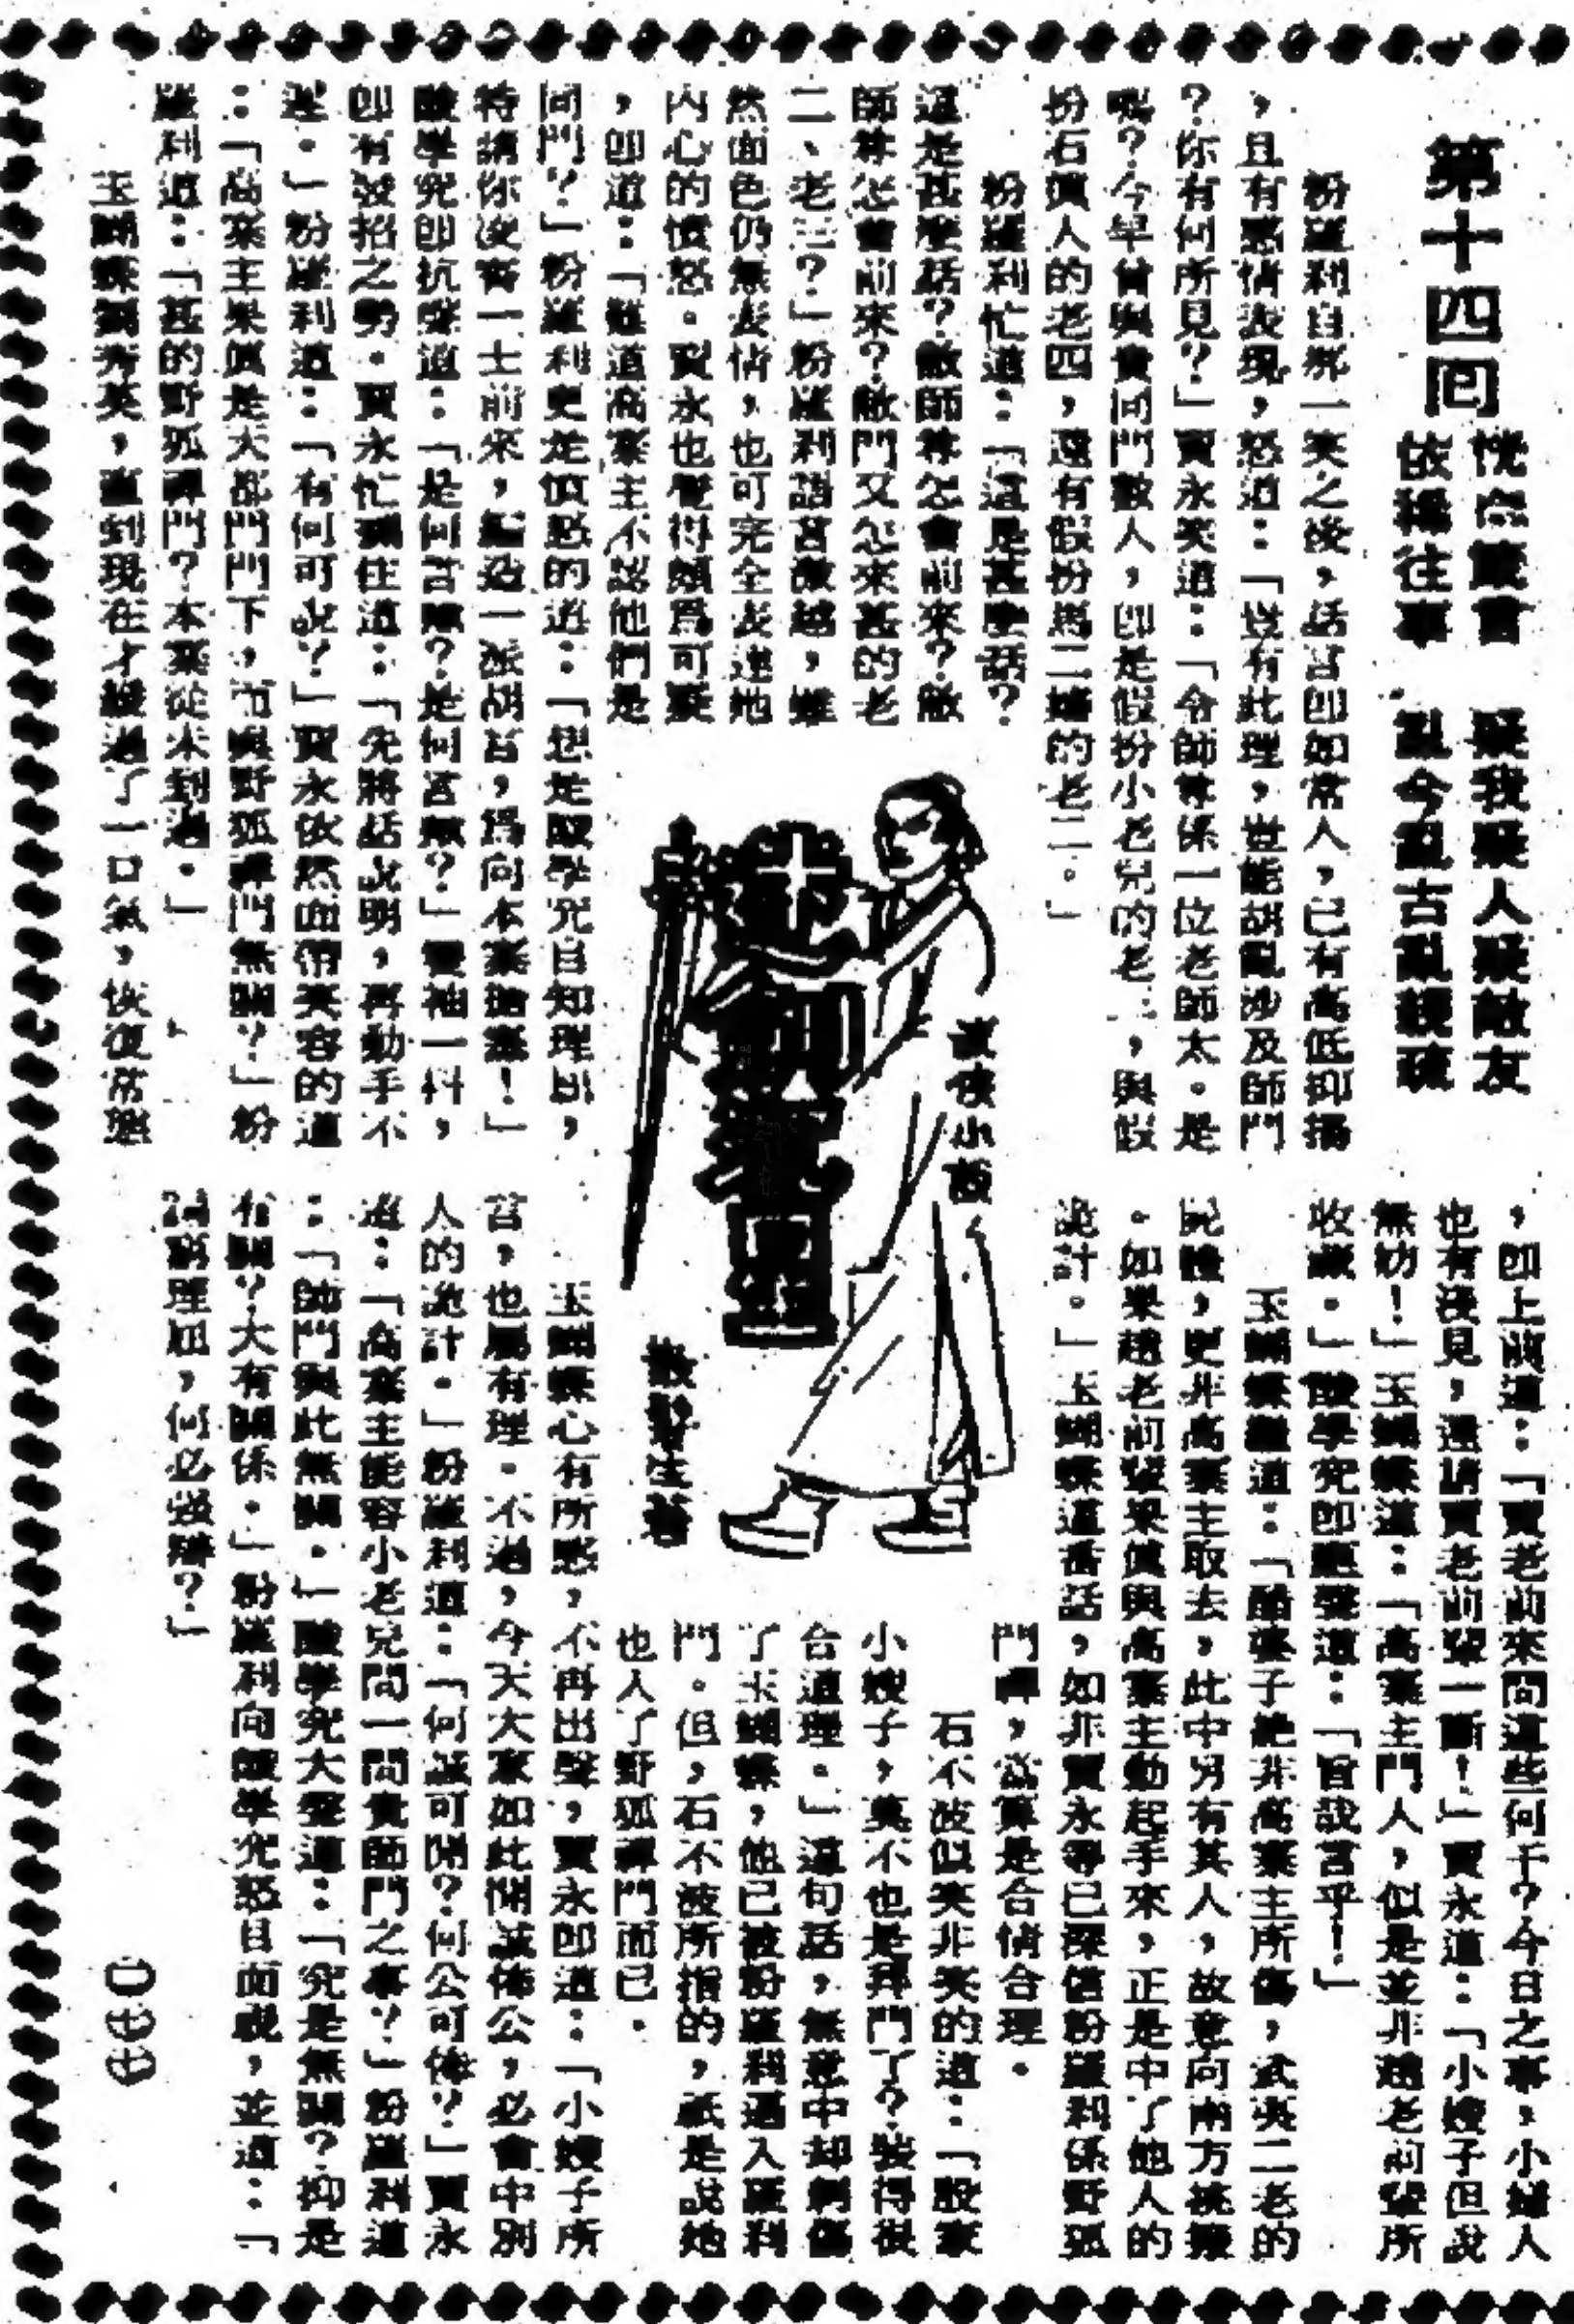 第十四回
疑我疑人疑敵友
依稀往事 亂今亂古亂親疏
粉羅利自娇一笑之後，話言卽如常人，已有高低抑揚
，且有感情表現，怒道：「豈有此理，豈能胡亂涉及師門
？你有何所見？」賈永笑道：「令師尊係一位老師太。是
呢？今早曾與貴同門數人，卽是假扮小老兒的老三，與假
扮石興人的老四，還有假扮馬二嬸的老二。」
粉羅利忙道：「這是甚麼話？
這是甚麼話？敝師尊怎會前來？敝
師尊怎會前來？敝門又怎來甚的老
二、老三？」粉羅利語言激越，雖
然面色仍無表情，也可完全表達她
內心的憤怒。賈永也覺得頗爲可疑
，卽道：「難道高寨主不認他們是
同門？」粉羅利更是憤怒的道：「想是酸學究自知理屈，
特請你凌齊一士前來，編造一派胡言，爲向本寨搶寨！」
酸學究卽抗聲道：「是何言歟？是何言歟？」雙袖一抖，
卽有發招之勢。賈永忙攔住道：「先將話說明，再動手不
遲。」粉羅利道：「有何可說？」賈永依然面帶笑容的道
：「高寨主果眞是大都門門下，而與野狐禪門無關？」粉
羅利道：「甚的野狐禪門？本寨從未到過。」
玉蝴蝶劉秀英，直到現在才緩過了一口氣，恢復常態
，卽上前道：「賈老前來問這些何干？今日之事，小婦人
也有淺見，還請賈老前輩一斷！」賈永道：「小嫂子但說
無妨！」玉蝴蝶道：「高寨主門人，似是並非趙老前輩所
收藏。」酸學究卽應聲道：「旨哉言乎！」
玉蝴蝶續道：「醋婆子絶非高寨主所傷，武夷二老的
屍體，更非高寨主取去，此中另有其人，故意向兩方挑撥
。如果趙老前輩果眞與高寨主動起手來，正是中了他人的
詭計。」玉蝴蝶這番話，如非賈永等已深信粉羅利係野狐
門禪，當算是合情合理。
石不波似笑非笑的道：「殷家
小嫂子，莫不也是拜門了？裝得很
合道理。」這句話，無意中却刺傷
了玉蝴蝶，他已被粉羅利逼入羅利
門。但，石不波所指的，祇是說她
也入了野狐禪門而已。
玉蝴蝶心有所感，不再出聲，賈永卽道：「小嫂子所
言，也屬有理。不過，今天大家如此開誠佈公，必會中別
人的詭計。」粉羅利道：「何誠可開？何公可佈？」賈永
道：「高寨主能容小老兒問一問貴師門之事？」粉羅利道
：「師門與此無關。」酸學究大聲道：「究是無關？抑是
有關？大有關係。」粉羅利向酸學究怒目而視，並道：「
詞窮理屈，何必強辯？」
武俠小說
散髮生著
一七七